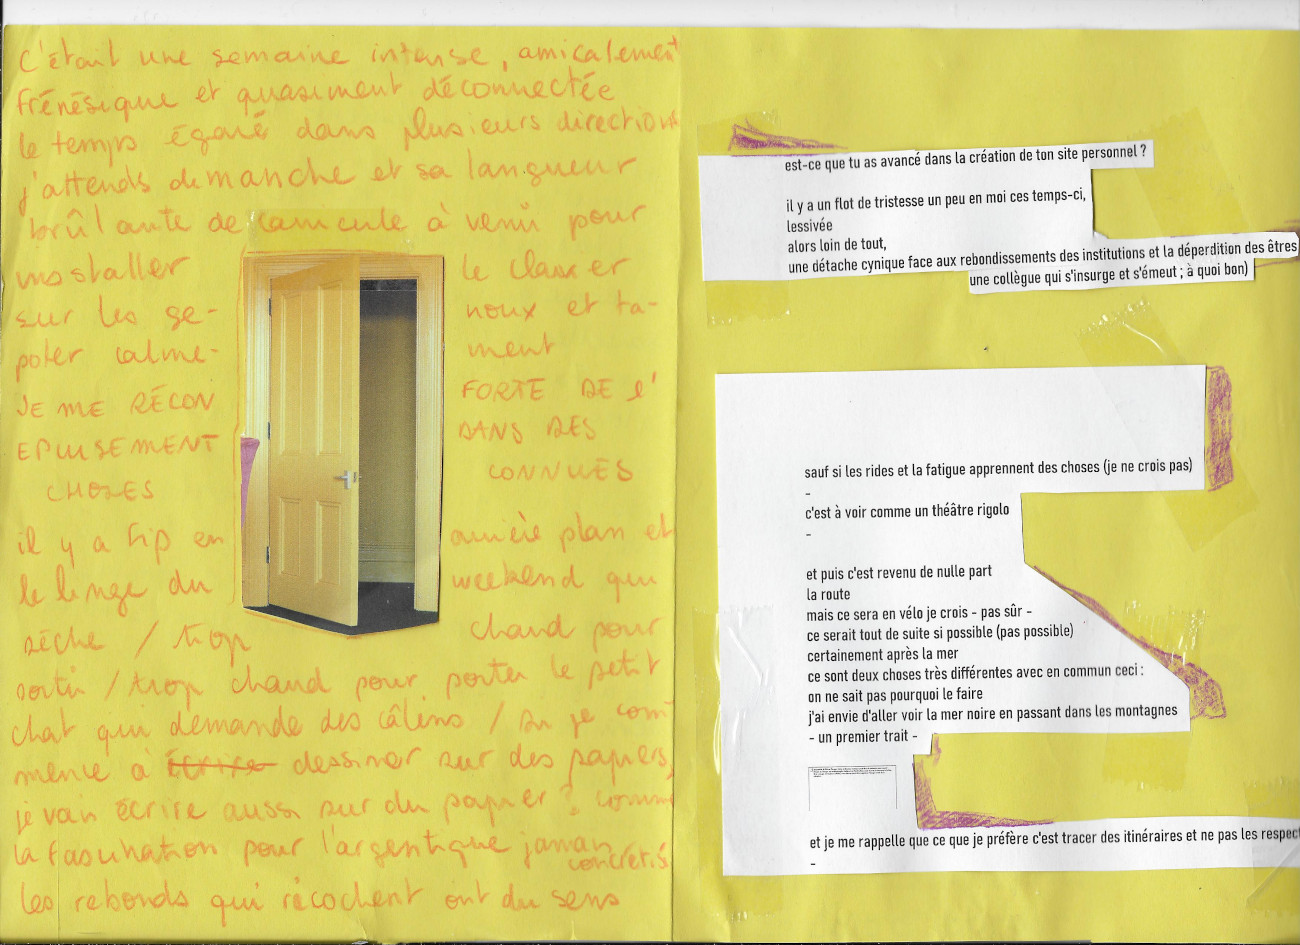 C'était une semaine intense, amicalement
frénésique et quasiment déconnectée
le temps égaré dans plusieurs directions
j'attends dimanche et sa langueur
brûlante de canicule à venir pour
installer le clavier
sur les ge- noux et ta-
poter calme- ment
JE ME RÉCON FORTE DE l'
EPUISEMENT DANS DES
CHOSES CONNUES
il y a hip en arrière plan et
le linge du weekend qui
sèche / trop chaud pour
sortir / trop chaud pour porter le petit
chat qui demande des câlins / si je com
mence à écrire dessiner sur des papiers,
je vais écrire aussi sur du papier ? comme
la fascination pour l'argentique jamais
concrétis
les rebonds qui ricochent ont du sens
est-ce que tu as avancé dans la création de ton site personnel ?
il y a un flot de tristesse un peu en moi ces temps-ci,
lessivée
alors loin de tout,
une détache cynique face aux rebondissements des institutions et la déperdition des êtres
une collègue qui s'insurge et s'émeut ; à quoi bon)
sauf si les rides et la fatigue apprennent des choses (je ne crois pas)
-
c'est à voir comme un théâtre rigolo
-
et puis c'est revenu de nulle part
la route
mais ce sera en vélo je crois - pas sûr -
ce serait tout de suite si possible (pas possible)
certainement après la mer
ce sont deux choses très différentes avec en commun ceci :
on ne sait pas pourquoi le faire
j'ai envie d'aller voir la mer noire en passant dans les montagnes
- un premier trait -
et je me rappelle que ce que je préfère c'est tracer des itinéraires et ne pas les respect
-